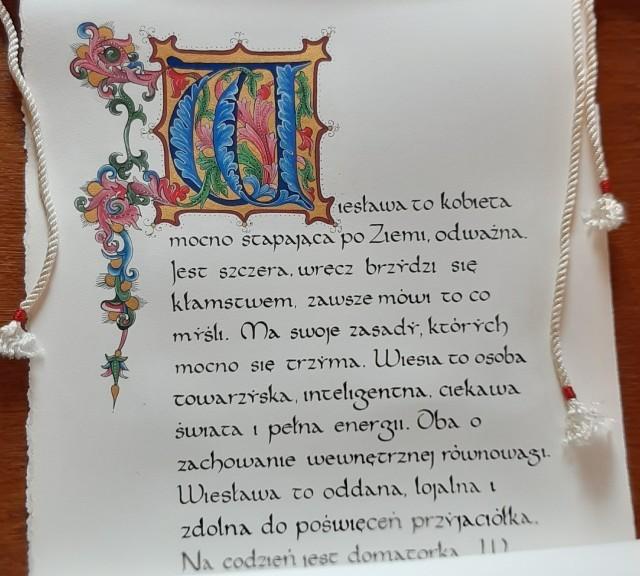 Wiesława to kobieta
mocno stąpająca po Ziemi, odważna.
Jest szczera, wręcz brzydzi się
kłamstwem, zawsze mówi to co
myśli. Ma swoje zasady, których
mocno się trzyma. Wiesia to osoba
towarzyska, inteligentna, ciekawa
świata i pełna energii. Dba o
zachowanie wewnętrznej równowagi.
Wiesława to oddana, lojalna i
zdolna do poświęceń przyjaciółka.
Na codzień jest domatorką